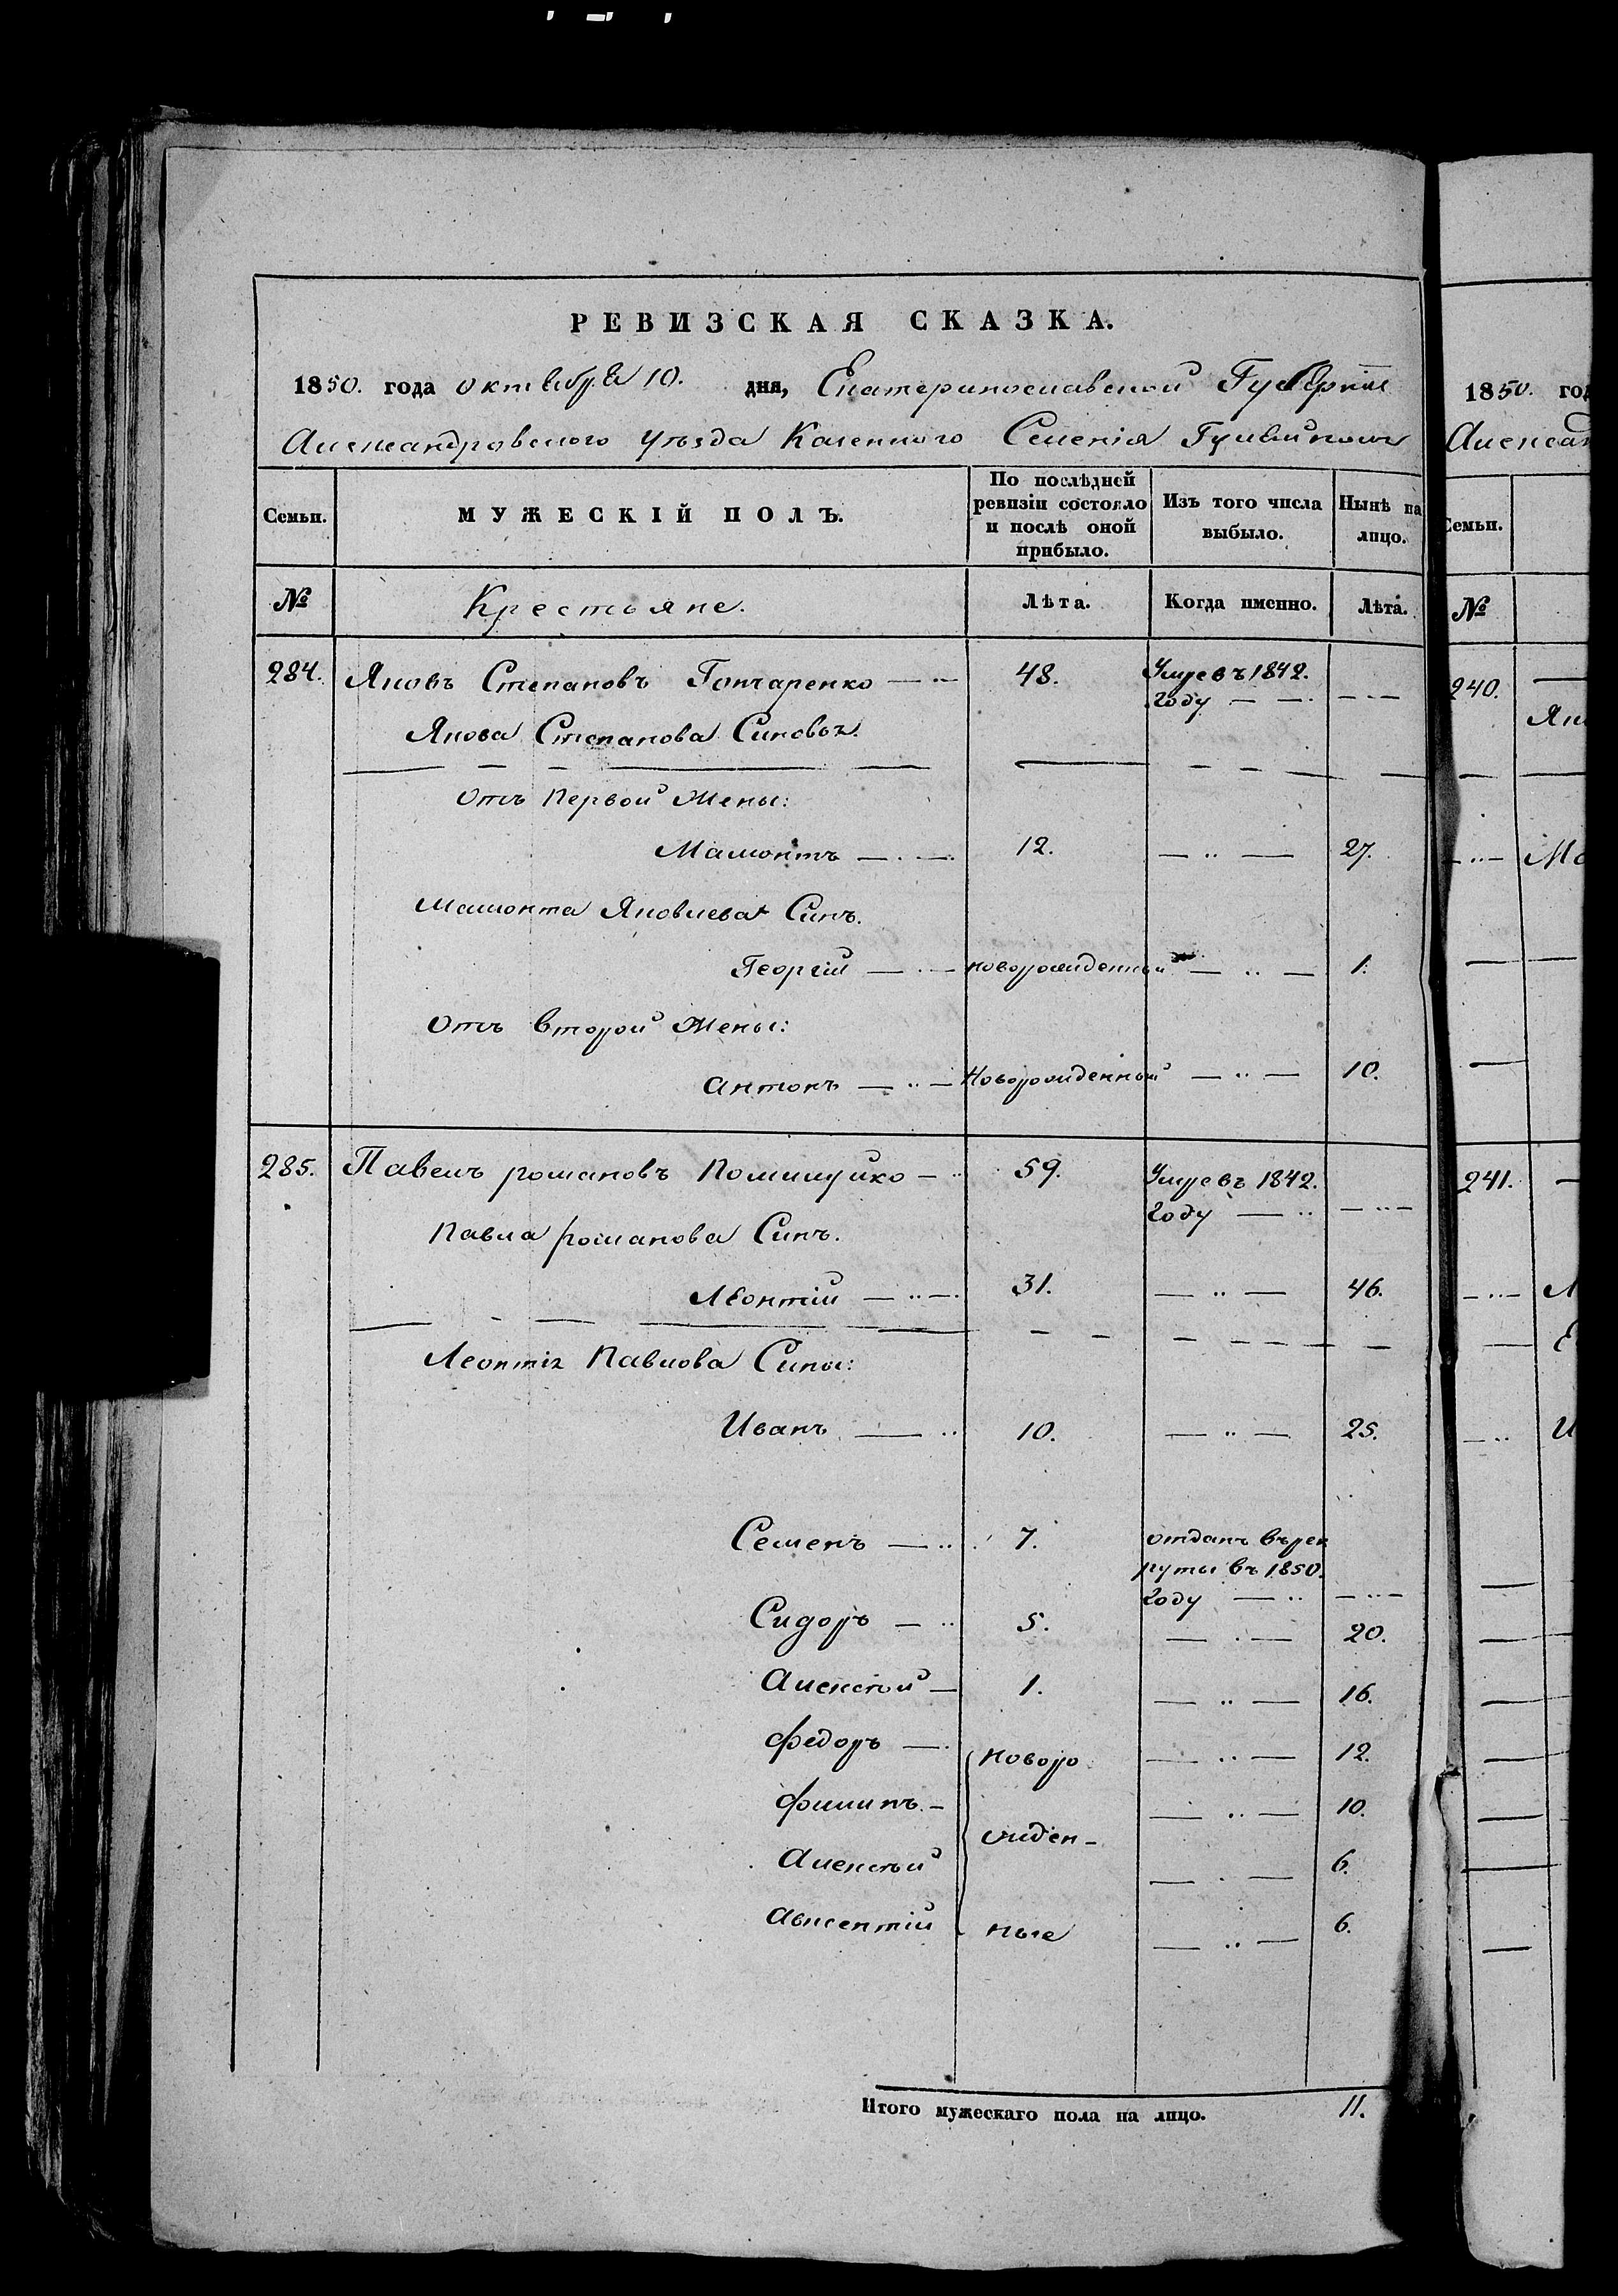 РЕВИЗСКАЯ СКАЗКА.
1850. года октября 10. дня, Екатеринославской Губерніи
Александровского уѣзда Казенного Селенія
Семьи. МУЖЕСКІЙ ПОЛЪ. По послѣдней ревизіи состояло и послѣ оной прибыло. Изъ того числа выбыло. Нынѣ на лицо.
№ Крестьяне. Лѣта. Когда именно. Лѣта.
284. Яковъ Степановъ Гончаренко 48. Умре въ 1842.
году
Якова Степанова Синовья.
Отъ Первой Жены:
Мамонтъ 12. 27.
Мамонта Яковлева Синъ.
Георгій новорожденный 1.
Отъ второй Жены:
Антонъ Новорожденный 10.
285. Павелъ романовъ 59. Умре въ 1842.
году
Павла романова Синъ.
Леонтій 31. 46.
Леонтія Павлова Сины:
Иванъ 10. 25.
Семенъ 7. отданъ въ рек
руты въ 1850.
году
Сидоръ 5. 20.
Алексѣй 1. 16.
Федоръ Новоро 12.
Филипъ 10.
жден-
Алексѣй 6.
Авксентій ные 6.
Итого мужескаго пола на лицо. 11.
1850. год
Александ
Семьи.
№
240.
Як
Ма
241.
Л
И